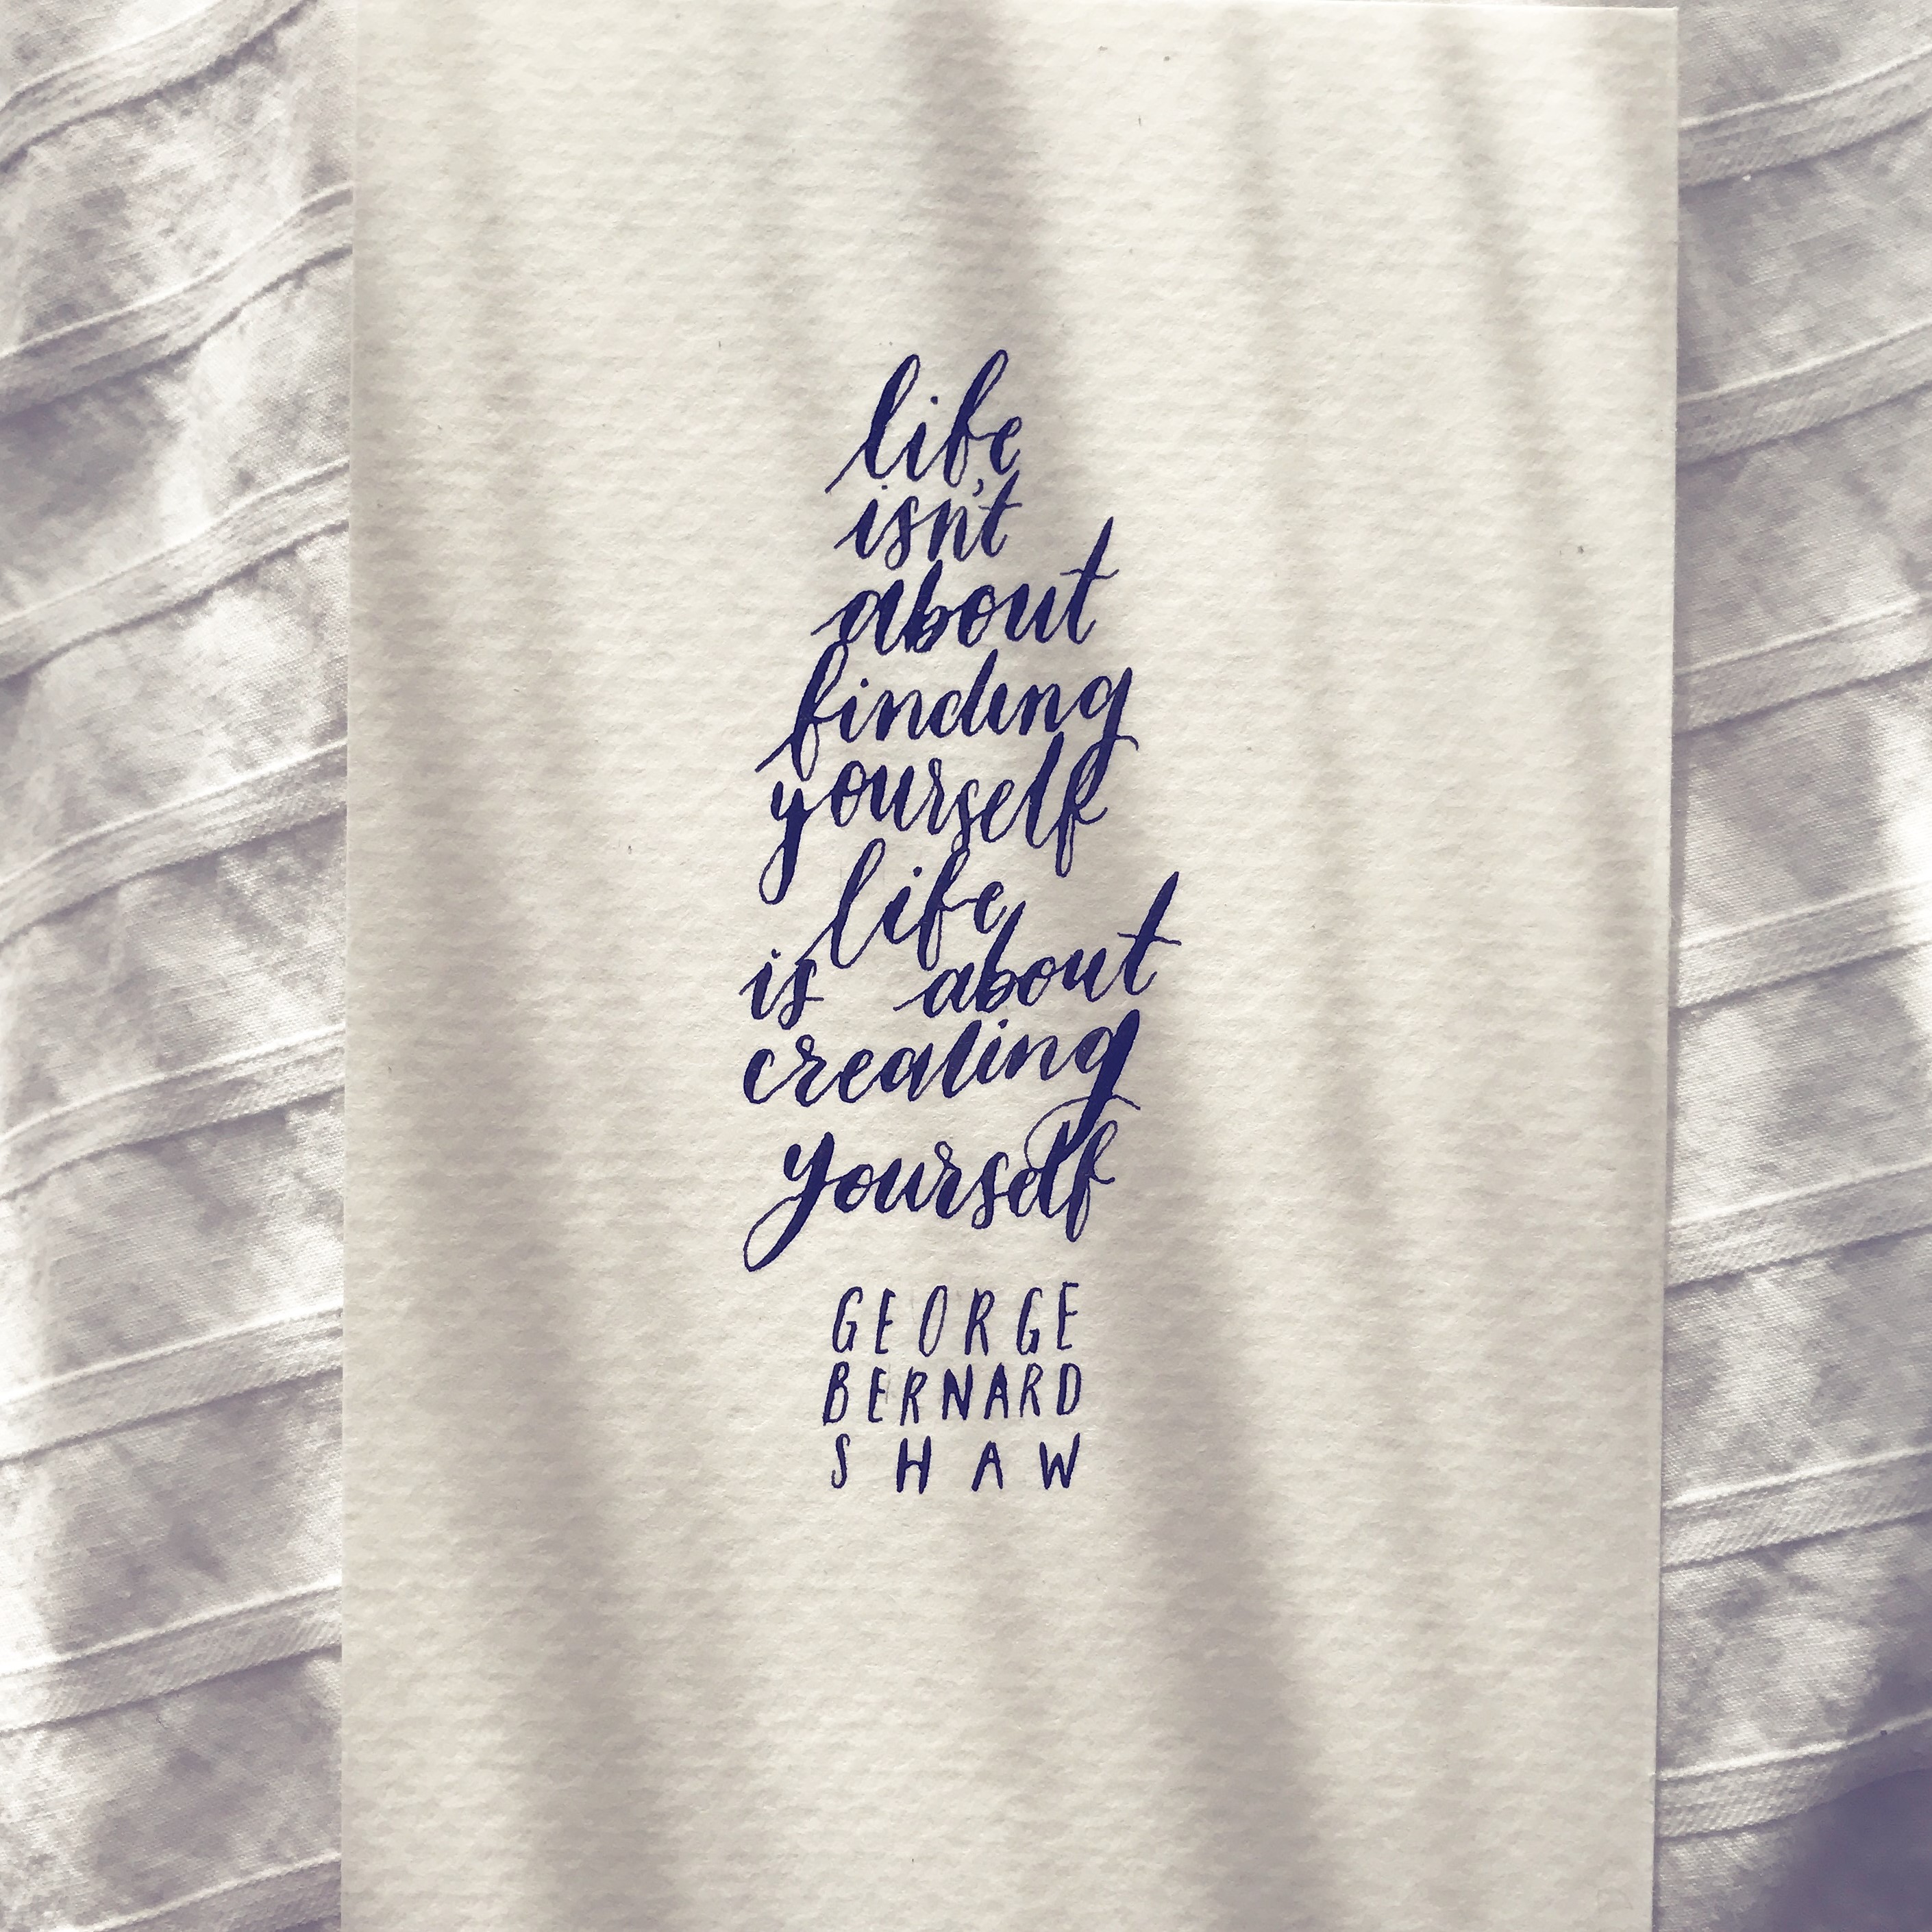 life
isn't
about
finding
yourself
life
is about
creating
yourself
GEORGE
BERNARD
SHAW